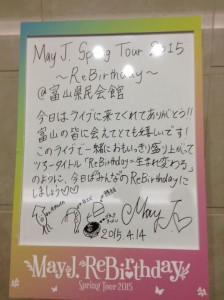 May J. Spring Tour 2015
～ReBirthday～
@富山県民会館
今日はライブに来てくれてありがとう!!
富山の皆に会えてとても嬉しいです!
このライブで一緒におもいっきり盛り上がって
ツアータイトル「ReBirthday=生まれ変わる」
のように、今日がみんなのReBirthdayに
しましょう♡♡
May J.
2015.4.14
May J. ReBirthday
Spring Tour 2015